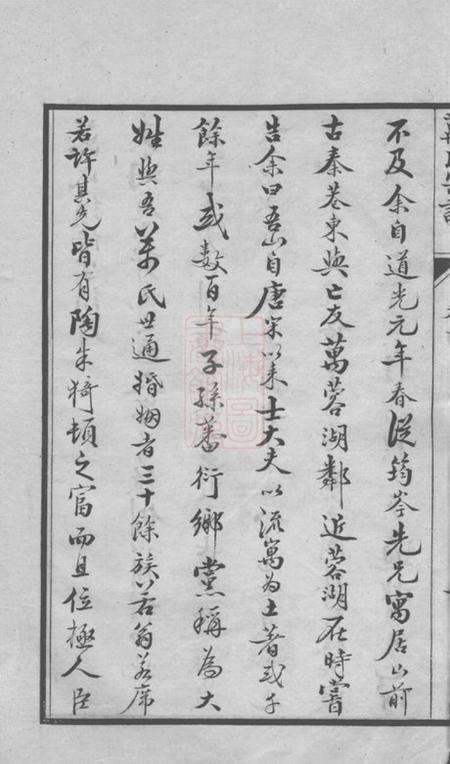 不及余自道光元年春從筠岑先兄寓居山前
古秦巷東與亡友萬蓉湖鄰近蓉湖在時嘗
告余曰吾山自唐宋以來士大夫以流寓為土著或千
餘年或數百年子孫蕃衍鄉黨稱為大
姓與吾萬氏世通婚姻者三十餘族以若翁若席
若許其先皆有陶朱猗頓之富而且位極人臣
上海圖